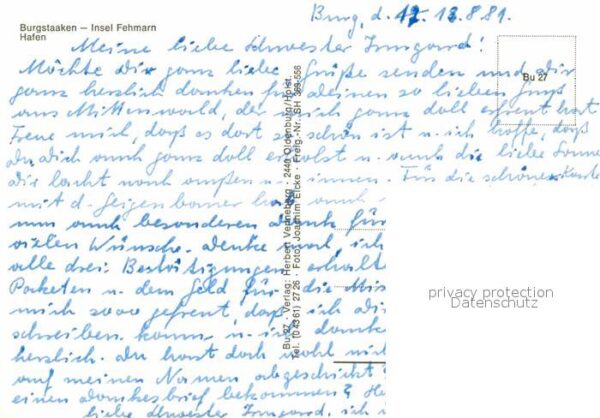 Burgstaaken — Insel Fehmarn
Hafen
Burg, d. 12. 8. 81.
Meine liebe Schwester Irmgard!
Möchte Dir ganz liebe Grüße senden und Dir
ganz herzlich danken für Deinen so lieben Gruß
aus Mittenwald, der mich ganz doll erfreut hat
Freue mich, daß es dort so schön ist u. ich hoffe, daß
Du Dich auch ganz doll erholst u. auch die liebe Sonne
Dir lacht nach außen u. innen. Für die schöne Karte
mit d. Geigenbauer
nun auch besonderen Dank für
vielen Wünsche. Denke ich
alle drei Bestätigungen erhalte
Paketen u. dem Geld für die
mich sooo gefreut, daß ich Dir
schreiben kann, u. ich danke
herzlich. Du hast doch wohl
auf meinen Namen abgeschickt
einen Dankesbrief bekommen?
liebe Schwester Irmgard, ich
Bu 27
Bu 27 · Verlag: Herbert Venneberg · 2440 Oldenburg/Holst.
Tel. (0 43 61) 27 26 · Foto: Joachim Eicke · Freig.-Nr. SH 369-556
privacy protection
Datenschutz